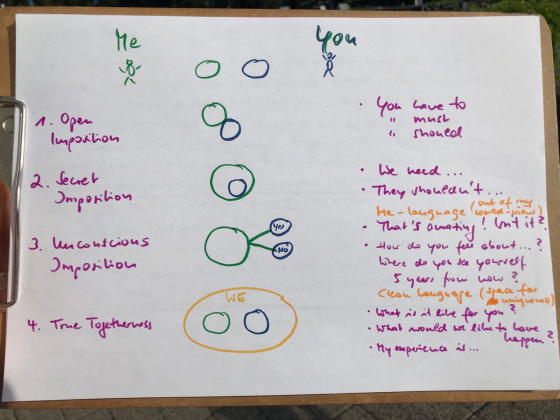 Me
You
1. Open
Imposition
• You have to
" must
" should
2. Secret
Imposition
• We need ...
• They shouldn't ...
Me-language (out of my
world-view)
3. Unconscious
Imposition
Yes
No
• That's amazing! Isn't it?
• How do you feel about...?
Where do you see yourself
5 years from now?
Clean Language (space for
uniqueness)
WE
4. True Togetherness
• What is it like for you?
• What would we like to have
happen?
• My experience is ...